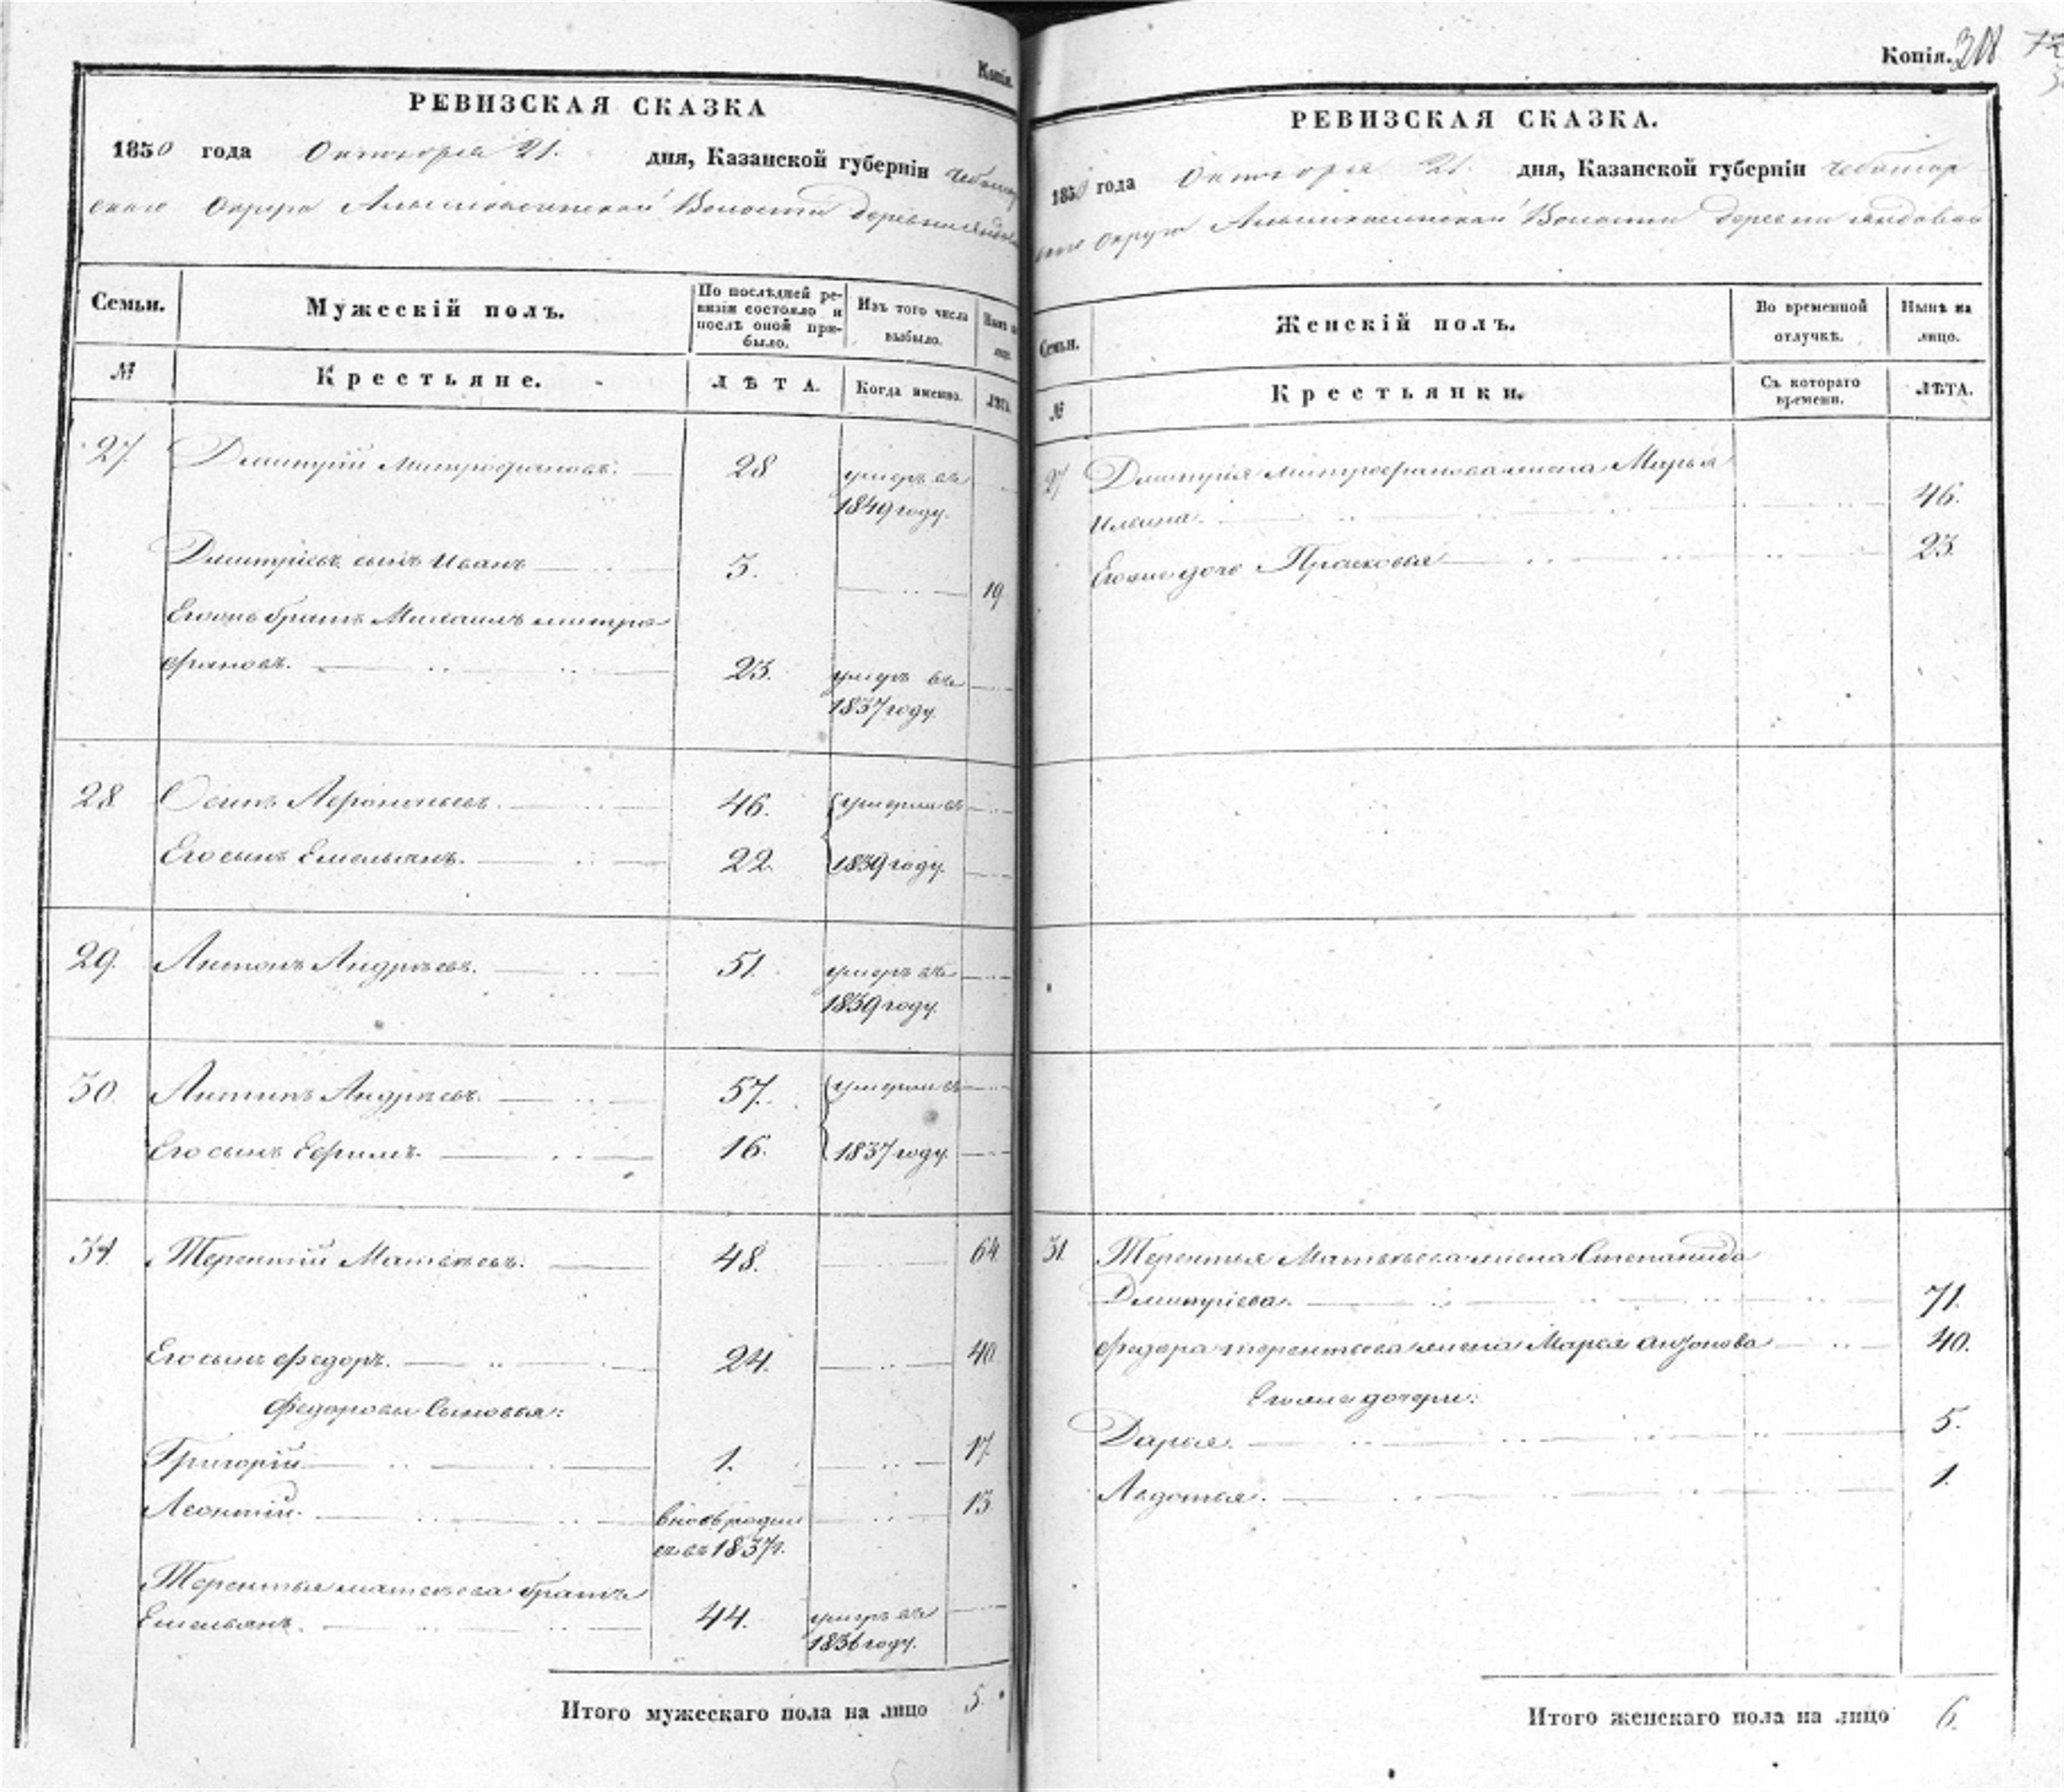 Копія.
РЕВИЗСКАЯ СКАЗКА
1850 года Октября 21. дня, Казанской губерніи Чебоксар
скаго Округа Волости деревни
Семьи.
Мужескій полъ.
По послѣдней ре-
визіи состояло и
послѣ оной при-
было.
Изъ того числа
выбыло.
Нынѣ на
лицо.
№
Крестьяне.
ЛѢТА.
Когда именно.
ЛѢТА.
27. Дмитрій Митрофановъ. 28 умеръ въ
1849 году.
Дмитріевъ сынъ Иванъ 3. 19
Егожъ братъ Михаилъ Митро
фановъ. 23. умеръ въ
1837 году.
28 Осипъ 46. умерли въ
Его сынъ Емельянъ. 22. 1839 году.
29. Антонъ Андреевъ. 51. умеръ въ
1839 году.
30. Антипъ Андреевъ. 57. умерли въ
Его сынъ Ефимъ. 16. 1837 году.
31. Терентій Матвѣевъ. 48. 64
Его сынъ Федоръ. 24. 40
Федоровы Сыновья:
Григорій 1. 17.
Леонтій. вновь родил
ся въ 1837 г. 13
Терентья Матвѣева братъ
Емельянъ. 44. умеръ въ
1836 году.
Итого мужескаго пола на лицо 5.
Копія. 308
РЕВИЗСКАЯ СКАЗКА.
1850 года Октября 21. дня, Казанской губерніи Чебоксар
скаго Округа Волости деревни Яндовой
Семьи.
Женскій полъ.
Во временной
отлучкѣ.
Нынѣ на
лицо.
№
Крестьянки.
Съ котораго
времени.
ЛѢТА.
27 Дмитрія Митрофанова жена Марья
Ильина. 46.
Егоже дочь Прасковья 23.
31. Терентья Матвѣева жена Степанида
Дмитріева. 71.
Федора Терентьева жена Марья Антонова 40.
Егоже дочери:
Дарья. 5.
Авдотья. 1.
Итого женскаго пола на лицо 6.